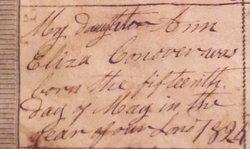 My daughter Ann
Eliza Conover was
born the fifteenth
day of May in the
year of our Lord 1824